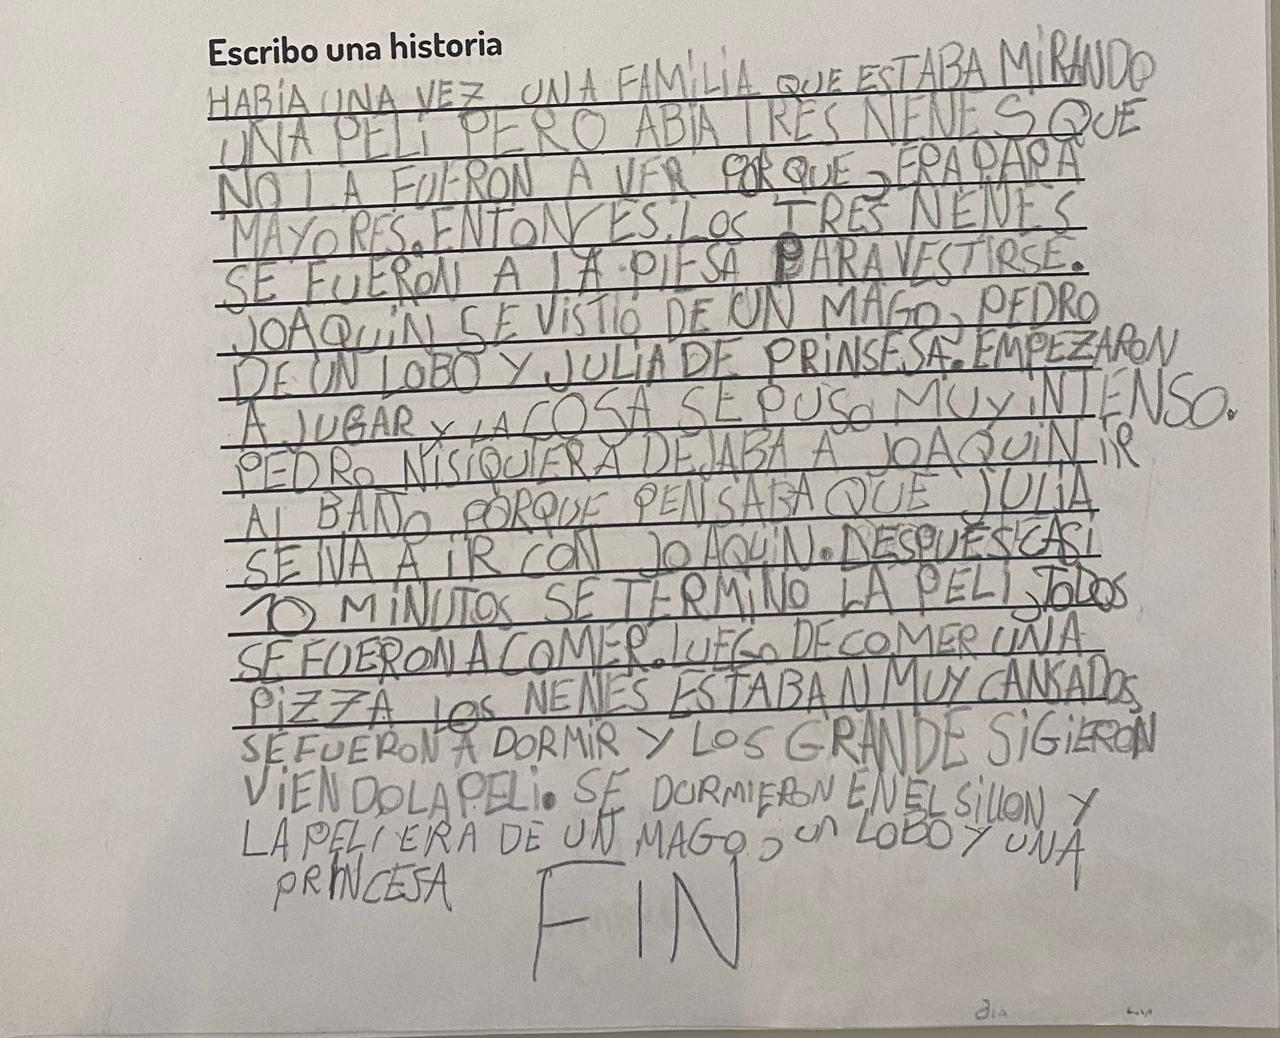 Escribo una historia
HABÍA UNA VEZ UNA FAMILIA QUE ESTABA MIRANDO
UNA PELI PERO ABIA TRES NENES QUE
NO LA FUERON A VER PORQUE, ERA PARA
MAYORES. ENTONCES. LOS TRES NENES
SE FUERON A LA PIESA PARA VESTIRSE.
JOAQUIN SE VISTIO DE UN MAGO, PEDRO
DE UN LOBO Y JULIA DE PRINSESA. EMPEZARON
A JUGAR Y LA COSA SE PUSO MUY INTENSO.
PEDRO NISIQUIERA DEJABA A JOAQUIN IR
AL BAÑO PORQUE PENSABA QUE JULIA
SE IVA A IR CON JOAQUIN. DESPUES CASI
10 MINUTOS SE TERMINO LA PELI, TODOS
SE FUERON A COMER. LUEGO DE COMER UNA
PIZZA LOS NENES ESTABAN MUY CANSADOS
SE FUERON A DORMIR Y LOS GRANDE SIGIERON
VIENDO LA PELI. SE DURMIERON EN EL SILLON Y
LA PELI ERA DE UN MAGO, UN LOBO Y UNA
PRINCESA
FIN